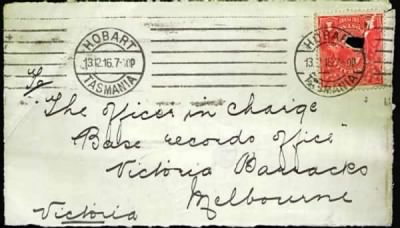 HOBART HOBART
13.12.16.7-30P
TASMANIA TASMANIA
To
The officer in charge
Base records office
Victoria Barracks
Melbourne
Victoria